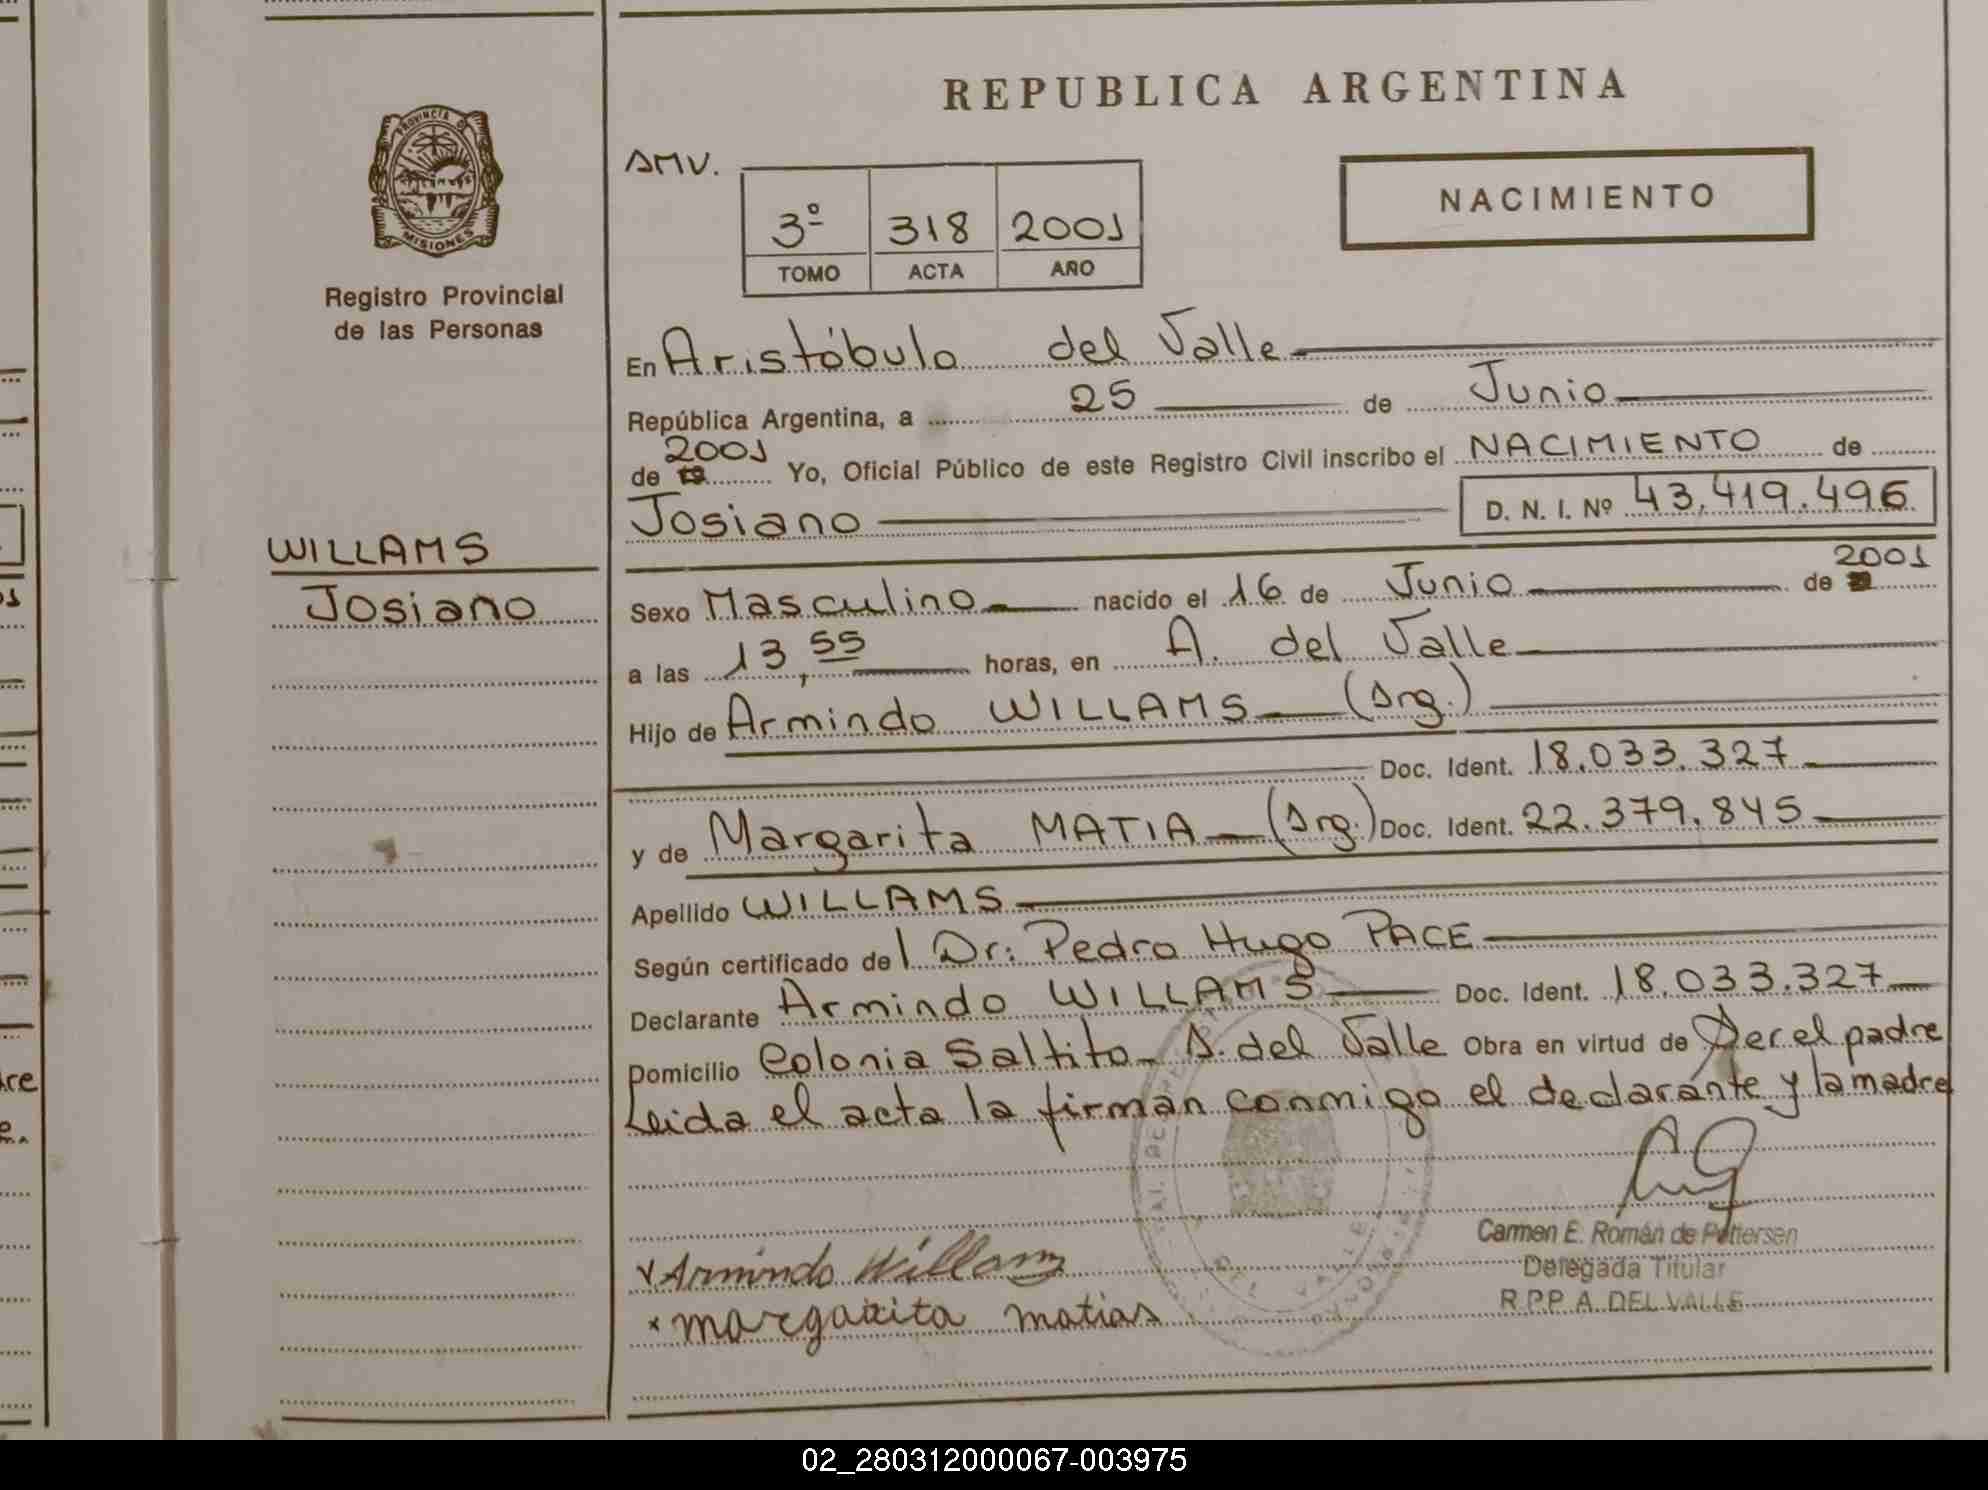 REPUBLICA ARGENTINA
PROVINCIA DE
MISIONES
Registro Provincial
de las Personas
AMV.
3º 318 2001
TOMO ACTA AÑO
NACIMIENTO
En Aristóbulo del Valle
República Argentina, a 25 de Junio
de 19 2001 Yo, Oficial Público de este Registro Civil inscribo el NACIMIENTO de
Josiano D. N. I. Nº 43.419.496
WILLAMS
Josiano
Sexo Masculino nacido el 16 de Junio de 2001
a las 13,55 horas, en A. del Valle
Hijo de Armindo WILLAMS (Arg.)
Doc. Ident. 18.033.327
y de Margarita MATIA (Arg.) Doc. Ident. 22.379.845
Apellido WILLAMS
Según certificado del Dr: Pedro Hugo PACE
Declarante Armindo WILLAMS Doc. Ident. 18.033.327
Domicilio Colonia Saltito A. del Valle Obra en virtud de Ser el padre
Leida el acta la firman conmigo el declarante y la madre
Carmen E. Román de Pettersen
Delegada Titular
R.P.P. A. DEL VALLE
Armindo Willams
x margarita matias
DEL VALLE
02_280312000067-003975